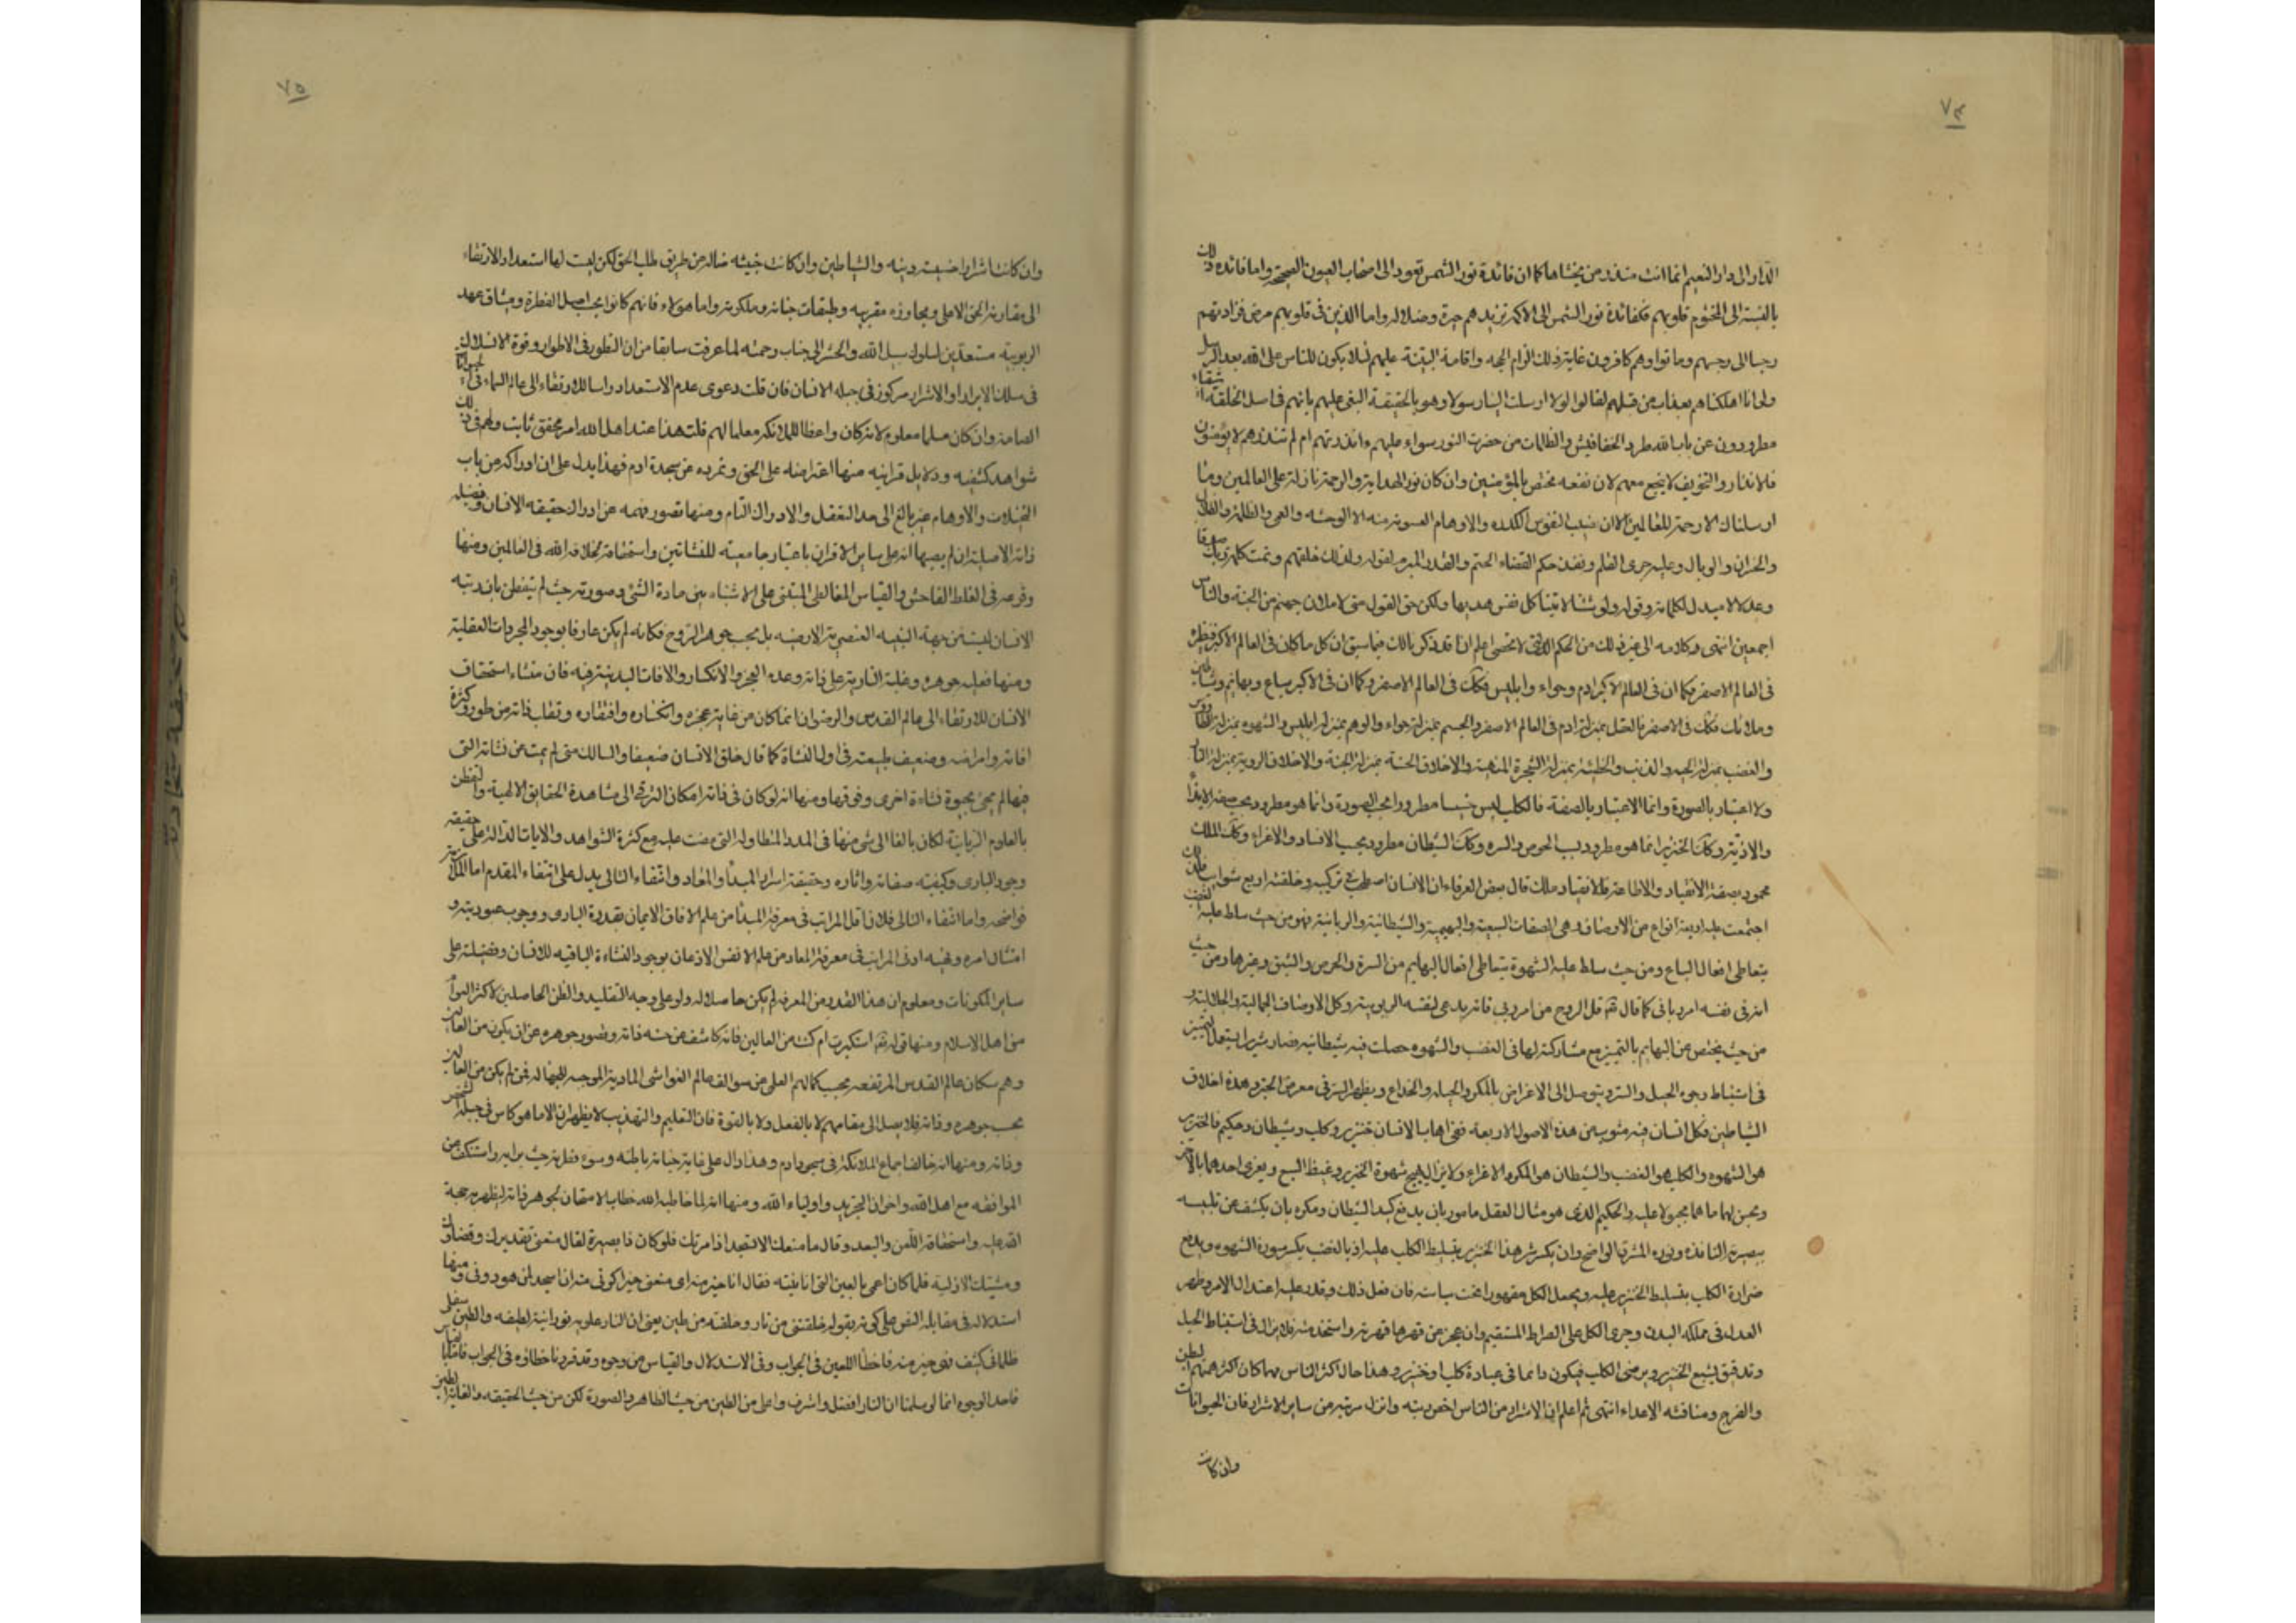 ٧٤
الدار الى دار النعيم انما انت منذر من يخشاها كما ان فائدة نور الشمس تعود الى اصحاب العيون الصحيحة واما فائدة ذلك
بالنسبة الى المختوم قلوبهم فكفائدة نور الشمس الى الاكمه تزيدهم حيرة وضلالة واما الذين فى قلوبهم مرض فزادتهم
رجسا الى رجسهم وماتوا وهم كافرون غاية ذلك الزام الحجه واقامة البينة عليهم لئلا يكون للناس على الله بعد الرسل
ولو انا اهلكناهم بعذاب من قبلهم لقالوا لولا ارسلت الينا رسولا وهو بالحقيقة النعى عليهم بانهم فى اصل الخلقة اشقياء
مطرودون عن باب الله طرد الخفافيش والظلمات من حضرت النور سواء عليهم ءانذرتهم ام لم تنذرهم لا يؤمنون
فالانذار والتخويف لا ينجع معهم لان نفعه مختص بالمؤمنين وان كان نور الهداية والرحمة نازلة على العالمين وما
ارسلناك الا رحمة للعالمين الا ان نصيب النفوس الكدره والاوهام المعسوفة منه الا الوحشه والعمى والظلمة والضلال
والخسران والوبال وعليه جرى القلم ونفذ حكم القضاء الحتم والقدر المبرم لقوله ولذلك خلقهم وتمت كلمة ربك صدقا
وعدلا لا مبدل لكلماته وقوله ولو شئنا لاتينا كل نفس هديها ولكن حق القول منى لاملان جهنم من الجنة والناس
اجمعين انتهى كلامه الى غير ذلك من الحكم التى لا تحصى اعلم انا قد ذكرنا لك فيما سبق ان كل ما كان فى العالم الاكبر فنظيره
فى العالم الاصغر فكما ان فى العالم الاكبر ادم وحواء وابليس فكك فى العالم الاصغر وكما ان فى الاكبر سباع وبهائم وشياطين
وملائك فكك فى الاصغر فالعقل بمنزلة ادم فى العالم الاصغر والجسم بمنزلة حواء والوهم بمنزلة ابليس والشهوه بمنزلة الطاووس
والغضب بمنزلة الحيه والذنب والخطيئة بمنزلة الشجرة المنهية والاخلاق الحسنة بمنزلة الجنة والاخلاق الردية بمنزلة النار
ولا اعتبار بالصورة وانما الاعتبار بالصفة فالكلب ليس خسيسا مطرودا بحسب الصورة وانما هو مطرود بحسب صفة الايذاء
والاذية وكك الخنزير انما هو مطرود بسبب الحرص والشره وكك الشيطان مطرود بحسب الافساد والاغراء وكك الملك
محمود بصفة الانقياد والاطاعة قال بعض العرفاء ان الانسان اصطحب فى تركيبه وخلقته اربع شوايب فلذلك
اجتمعت عليه اربعة انواع من الاوصاف وهى الصفات السبعية والبهيمية والشيطانية والربانية فهو من حيث سلط عليه الغضب
يتعاطى افعال السباع ومن حيث سلط عليه الشهوة يتعاطى افعال البهايم من الشره والحرص والشبق وغيرها ومن حيث
انه فى نفسه امر ربانى كما قال تقم قل الروح من امر ربى فانه يدعى لنفسه الربوبية وكل الاوصاف الجمالية والجلالية و
من حيث يختص عن البهايم بالتمييز مع مشاركته لها فى الغضب والشهوه حصلت فيه شيطانية فصار شريرا يستعمل التمييز
فى استنباط وجوه الحيل والشر ويتوصل الى الاغراض بالمكر والحيله والخداع ويظهر الشر فى معرض الخير وهذه اخلاق
الشياطين فكل انسان فيه شوب من هذه الاصول الاربعه ففى اهاب الانسان خنزير وكلب وشيطان وحكيم فالخنزير
هو الشهوه والكلب هو الغضب والشيطان هو المكر والاغراء ولا يزال يهيج شهوة الخنزير وغيظ السبع ويغرى احدهما بالاخر
ويحسن لهما ما هما مجبولا عليه والحكيم الذى هو مثال العقل مامور بان يدفع كيد الشيطان ومكره بان يكشف عن تلبيسه
ببصيرته النافذه ونوره المشرق الواضح وان يكسر شره هذا الخنزير بتسليط الكلب عليه اذ بالغضب يكسر سورة الشهوه ويدفع
ضراوة الكلب بتسليط الخنزير عليه ويجعل الكل مقهورا تحت سياسته فان فعل ذلك وقدر عليه اعتدل الامر وظهر
العدل فى مملكة البدن وجرى الكل على الصراط المستقيم وان عجز عن قهرها قهرته واستخدمته فلا يزال فى استنباط الحيل
وتدقيق ليشبع الخنزير ويرضى الكلب فيكون دائما فى عبادة كلب او خنزير وهذا حال اكثر الناس مهما كان اكثر همتهم البطن
والفرج ومنافسة الاعداء انتهى ثم اعلم ان الاشرار من الناس اخص رتبه وانزل مرتبة من ساير الاشرار فان الحيوانات
وان كانت
٧٥
وان كانت اشرارا خسيسة دينه والشياطين وان كانت خبيثه ضالة عن طريق طلب الحق لكن ليست لها استعداد الارتقاء
الى مقارنة الحق الاعلى ومجاورة مقربيه وطبقات جنانه وملكوته واما هؤلاء فانهم كانوا بحسب اصل الفطرة وميثاق عهد
الربوبية مستعدين لسلوك سبيل الله والحشر الى جناب رحمته لما عرفت سابقا من ان التطور فى الاطوار وقوة الانسلاك
فى سلك الابرار او الاشرار مركوز فى جبلة الانسان فان قلت دعوى عدم الاستعداد والارتقاء الى عالم السماء فى
الصامتة وان كان مسلما معلوم لانه كان واعظا للملائكه معلما لهم قلت هذا عند اهل الله امر محقق ثابت ولهم فى ذلك
شواهد كشفيه ودلايل قرانيه منها اعتراضه على الحق وتمرده عن سجدة ادم فهذا يدل على ان ادراكه من باب
التخيلات والاوهام غير بالغ الى حد التعقل والادراك التام ومنها قصور فهمه عن ادراك حقيقه الانسان وفضيلة
ذاته الاصلية على ساير الاقران باعتبار جامعيته للنشاتين واستحقاقه لخلافة الله فى العالمين ومنها
وقوعه فى الغلط الفاحش والقياس المغالطى المبتنى على الاشتباه بين مادة الشئ وصورته حيث لم يتفطن بان رتبه
الانسان ليست من جهة البنيه العنصرية الارضيه بل بحسب جوهر الروح فكانه لم يكن عارفا بوجود المجردات العقلية
ومنها فعلية جوهره وغلبة النارية على ذاته وعدم العجز والانكسار والافات البدينة فيه فان منشاء استحقاق
الانسان للارتقاء الى عالم القدس والرضوان انما كان من غاية عجزه وانكساره وافتقاره وتقلب ذاته من طور وكثرة
افاته وامراضه وضعف طبيعته فى اول النشاة كما قال خلق الانسان ضعيفا والسالك متى لم يمت عن نشاته التى
فيها لم يحى بحيوة نشاءة اخرى وفوقها ومنها انه لو كان فى ذاته امكان الترقى الى مشاهدة الحقايق الالهية والتفطن
بالعلوم الربانية لكان بالغا الى شئ منها فى المدد المتطاوله التى مضت عليه مع كثرة الشواهد والايات الدالة على حقيقه
وجود البارى وكيفيته صفاته واثاره وحقيقة اسرار المبدأ والمعاد وانتفاء التالى يدل على انتفاء المقدم اما الملازمة
فواضحه واما انتفاء التالى فلان اقل المراتب فى معرفة المبدأ من علم الافاق الايمان بقدرة البارى ووجوب عبوديته و
امتثال امره ونهيه وادنى المراتب فى معرفة المعاد من علم الانفس الاذعان بوجود النشاءة الباقيه للانسان وفضيلته على
ساير المكونات ومعلوم ان هذا القدر من المعرفه لم يكن حاصلا له ولو على وجه التقليد والظن الحاصلين لاكثر العوام
من اهل الاسلام ومنها قوله تقم استكبرت ام كنت من العالين فانه كاشف عن خسة ذاته وقصور جوهره عن ان يكون من العالين
وهم سكان عالم القدس المرتفعه بحسب كمالهم العقلى عن سوالف عالم الغواشى المادية الموجبه للجهاله فمن لم يكن من العالين
بحسب جوهره وذاته فلا يصل الى مقامهم لا بالفعل ولا بالقوة فان التعليم والتهذيب لا يظهران الا ما هو كامن فى جبلة الشخص
وذاته ومنها انه خالف اجماع الملائكة فى سجود ادم وهذا دال على غاية خباثة باطنه وسوء فطرته حيث برايه واستنكف من
الموافقه مع اهل الله واخوان التجريد واولياء الله ومنها انه لما خاطبه الله خطاب الامتحان لجوهر ذاته ليظهر به حجة
الله عليه واستحقاقه اللعن والبعد وقال ما منعك الا تسجد اذ امرتك فلو كان ذا بصيرة لقال منعنى تقديرك وقضاؤك
ومشيتك الازلية فلما كان اعمى بالعين التى نابيته فقال انا خير منه اى منعنى خيرا كونى منه انا اسجد لمن هو دونى ومنها
استدلاله فى مقابلة النص على كونه بقوله خلقتنى من نار وخلقته من طين يعنى ان النار علويه نورانية لطيفه والطين سفلى
ظلمانى كثيف فهى خير منه فاخطأ اللعين فى الجواب وفى الاستدلال والقياس من وجوه وقد قررنا خطاؤه فى الجواب فاما القياس
فاحد الوجوه انما لو سلمنا ان النار افضل واشرف واعلى من الطين من حيث الظاهر والصورة لكن من حيث الحقيقه والغاية الطين